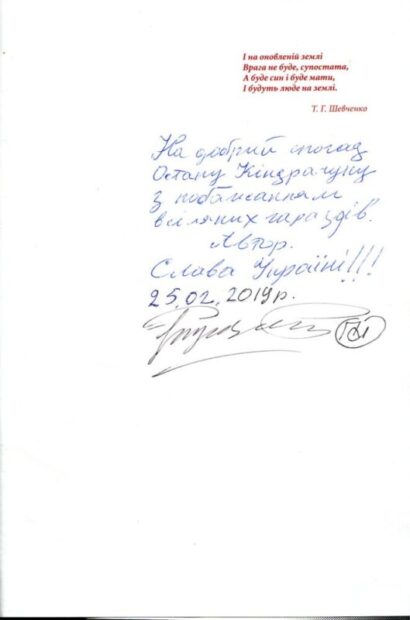 І на оновленій землі
Врага не буде, супостата,
А буде син і буде мати,
І будуть люде на землі.
Т. Г. Шевченко
На добрий спогад
Остапу Кіндрачуку
з побажанням
всіляких гараздів.
Автор.
Слава Україні!!!
25.02.2019 р.